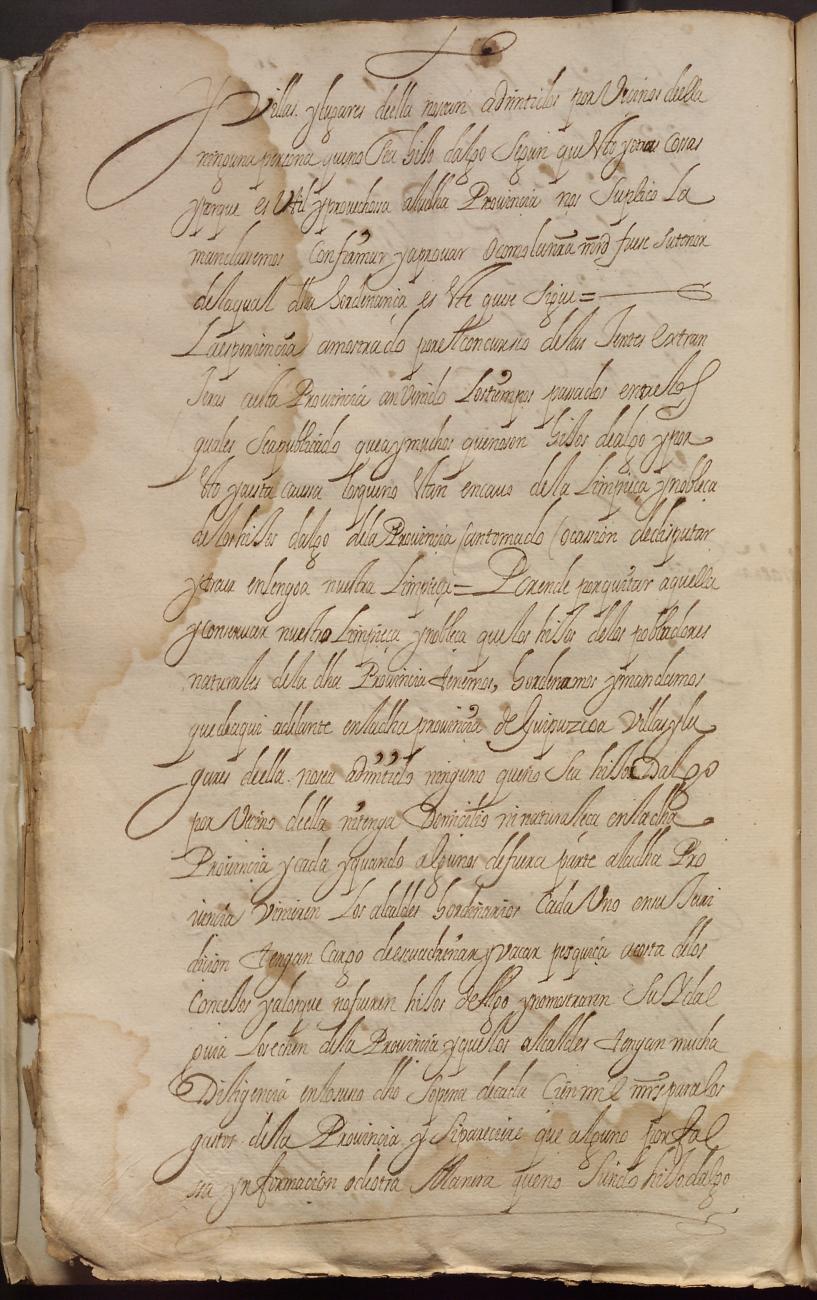 Villas y lugares della no sean admitidos por Vecinos della
ninguna persona que no sea hijo dalgo segun que esto y otras cosas
y porque es Util y provechosa a la dha Provincia nos suplico la
mandasemos confirmar y aprovar o como la nra mrd fuese su tenor
de la qual dha hordenanza es este que se sigue =
La esperiencia a mostrado por el concurso de las Jentes extran
Jeras a esta Provincia an venido los tiempos pasados entre los
quales se a publicado que ay muchos que no son hijos dealgo y por
esto y a esta causa los que no estan en cavo de la Limpieça y nobleça
de los hijos dalgo de la Provincia an tomado ocasion de disputar
y traer en lengoa nuestra Limpieça = Porende por quitar aquella
y conservar nuestra Limpieça y nobleça que los hijos de los pobladores
naturales de la dha Provincia tenemos, hordenamos y mandamos
que de aqui adelante en la dha provincia de Guipuzcoa Villas y lu
gares della no sea admitido ninguno que no sea hijo Dalgo
por Vecino della ni tenga Domicilio ni naturaleça en la dha
Provincia y cada y quando algunos de fuera parte a la dha Pro
vincia vinieren Los alcaldes hordinarios Cada Uno en su Juri
dicion tengan cargo de escudriñar y hacer pesquiça a costa de los
Concejos y a los que no fueren hijos dealgo y no mostraren Su Ydal
guia Los echen de la Provincia y que los alcaldes tengan mucha
Diligencia en lo suso dho so pena de cada Cien mil mrs para los
gastos de la Provincia y Si pareciere que alguno por fal
sa ynformacion o de otra Manera que no Siendo hijo dalgo